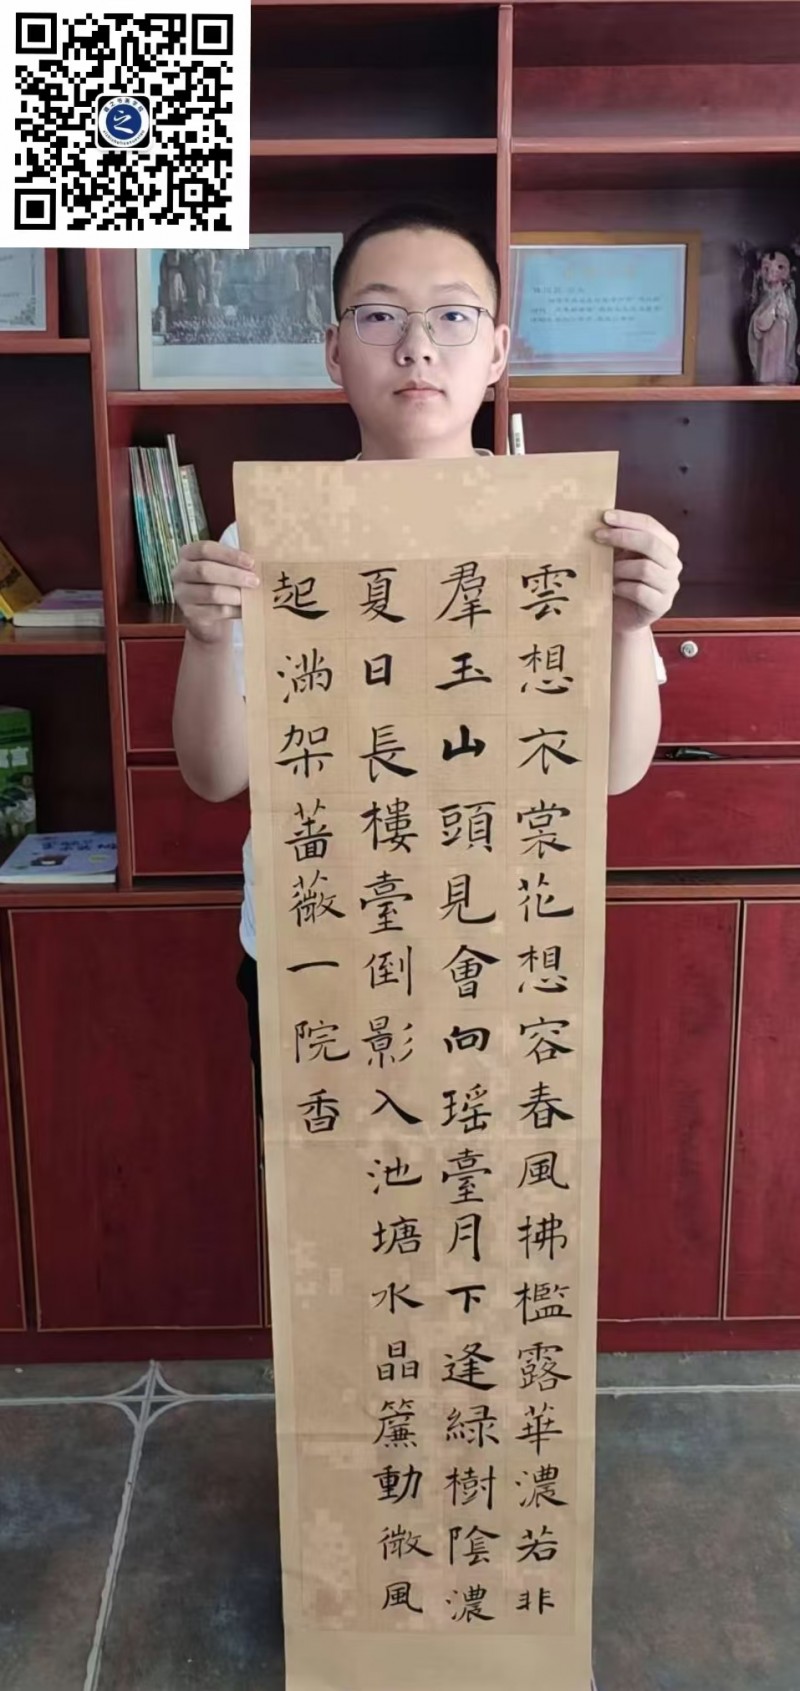 雲想衣裳花想容春風拂檻露華濃若非
羣玉山頭見會向瑶臺月下逢緑樹陰濃
夏日長樓臺倒影入池塘水晶簾動微風
起滿架薔薇一院香